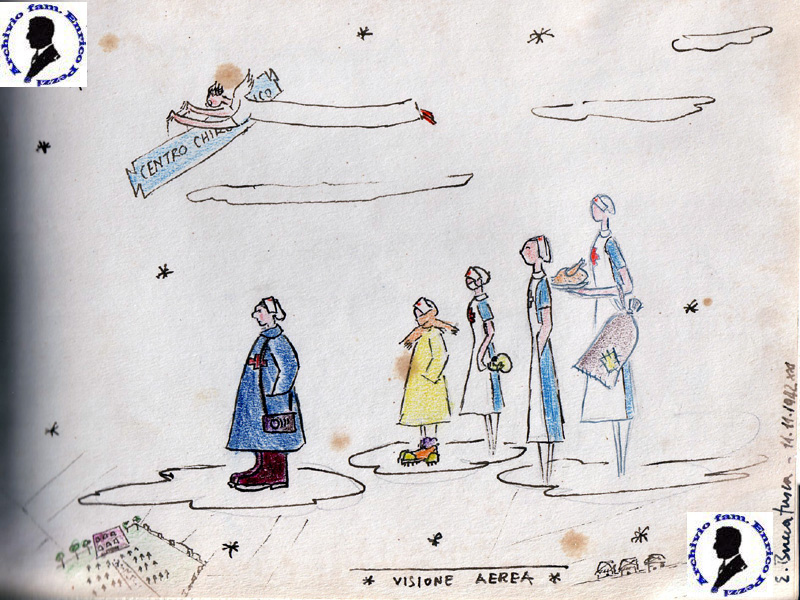 Archivio fam. Enrico Pezzi
CENTRO CHIRU
ICO
* VISIONE AEREA *
11.11.1942 XXI
Archivio fam. Enrico Pezzi